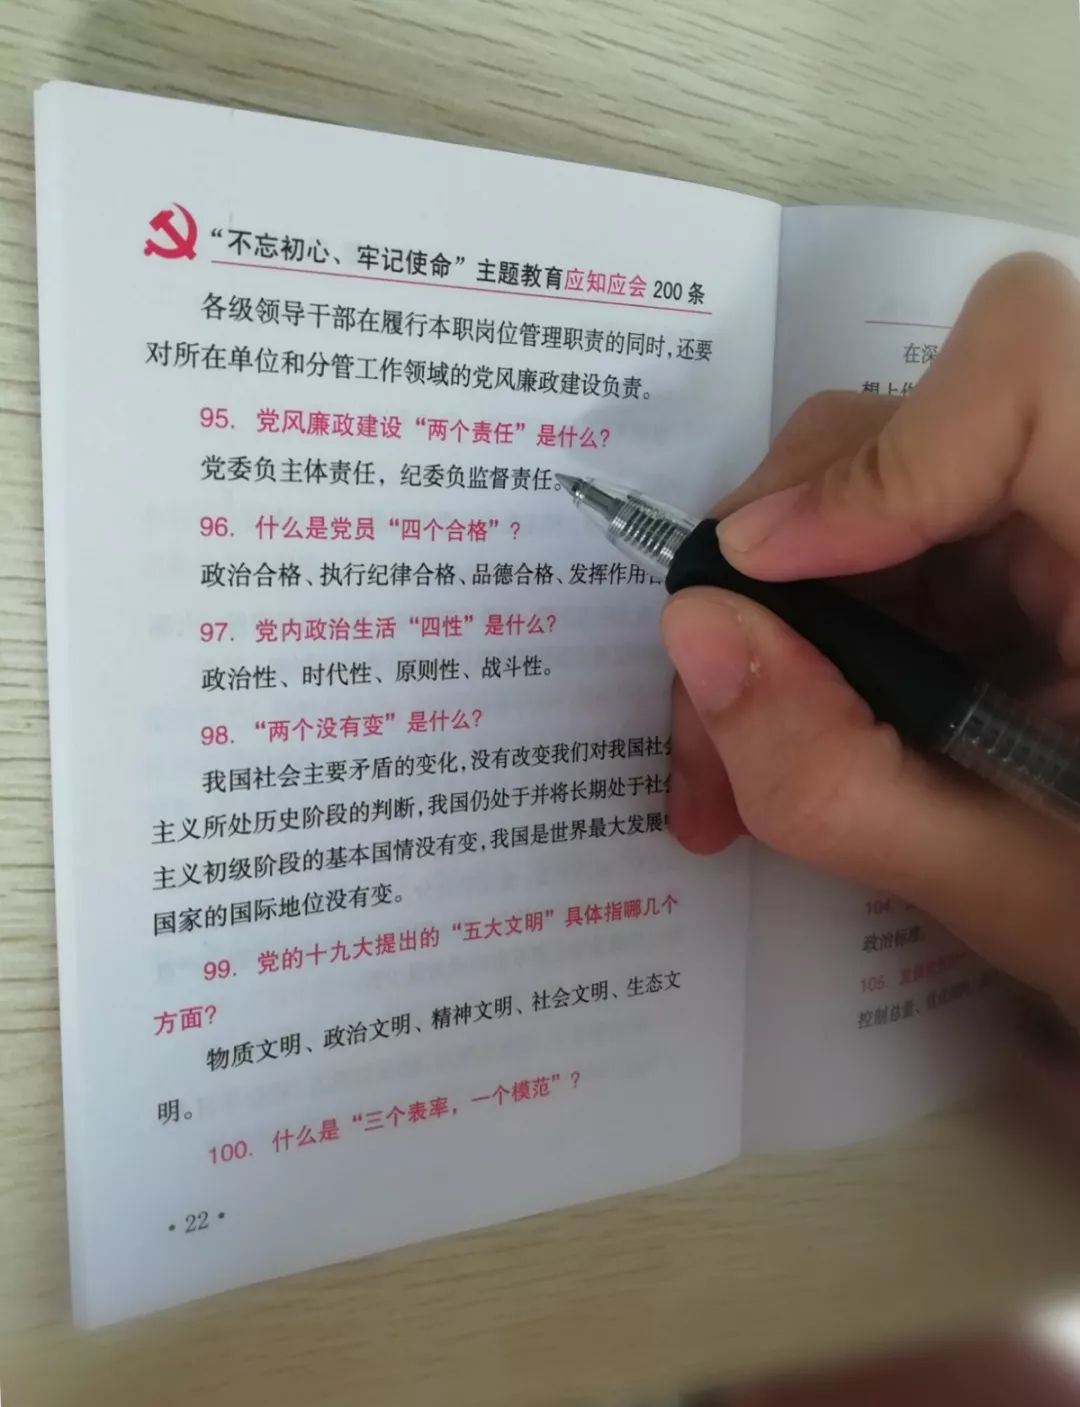 “不忘初心、牢记使命”主题教育应知应会200条
各级领导干部在履行本职岗位管理职责的同时,还要
对所在单位和分管工作领域的党风廉政建设负责。
95. 党风廉政建设“两个责任”是什么?
党委负主体责任,纪委负监督责任。
96. 什么是党员“四个合格”?
政治合格、执行纪律合格、品德合格、发挥作用合
97. 党内政治生活“四性”是什么?
政治性、时代性、原则性、战斗性。
98. “两个没有变”是什么?
我国社会主要矛盾的变化,没有改变我们对我国社会
主义所处历史阶段的判断,我国仍处于并将长期处于社会
主义初级阶段的基本国情没有变,我国是世界最大发展中
国家的国际地位没有变。
99. 党的十九大提出的“五大文明”具体指哪几个
方面?
物质文明、政治文明、精神文明、社会文明、生态文
明。
100. 什么是“三个表率,一个模范”?
·22·
在深
想上作
104.
政治标准。
105. 发展党员
控制总量、